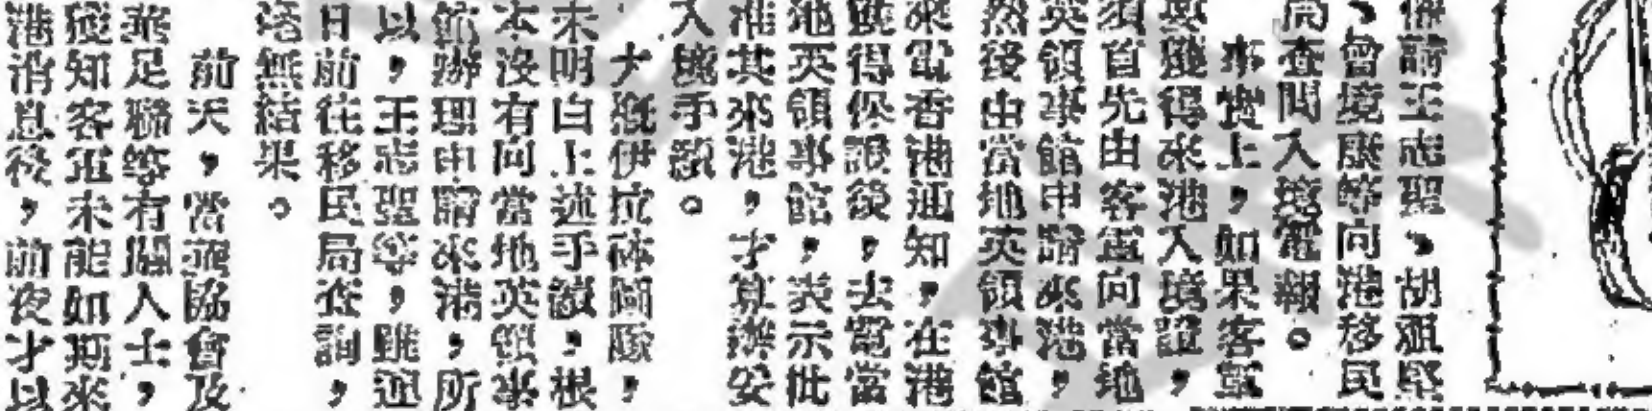 係請王志聖、胡祖堅
、曾境康等向港移民
局查問入境電報。
事實上,如果客軍
要獲得來港入境證,
須首先由客軍向當地
英領事館申請來港,
然後由當地英領事館
來電香港通知,在港
獲得保證後,去電當
地英領事館,表示批
准其來港,才算辦妥
入境手續。
大概伊拉砵閪隊,
未明白上述手續,根
本沒有向當地英領事
館辦理申請來港,所
以,王志聖等,雖連
日前往移民局查詢,
毫無結果。
前天,當華協會及
華足聯等有關人士,
獲知客軍未能如期來
港消息後,前夜才以